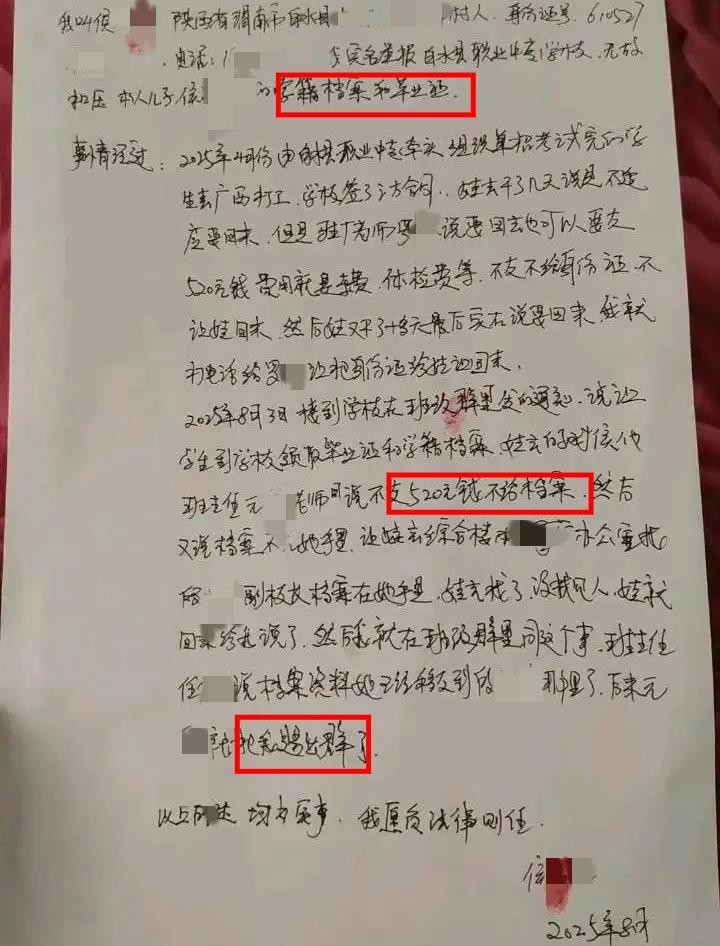 我叫侯 陕西省渭南市白水县 村人. 身份证号. 610527
电话:1 实名举报白水县职业中专学校. 无故
扣压本人儿子侯 的学籍档案和毕业证.
事情经过: 2025年4月份由白水县职业中专牵头组织单招考试完的学
生去广西打工, 学校签了三方合同. 娃去干了几天说是不适
应要回来, 但是驻厂老师罗 说要回去也可以要交
520元钱 费用就是车费. 体检费等. 不交不给身份证 不
让娃回来. 然后娃又干了十多天最后实在说要回来 我就
打电话给罗 让把身份证给娃还回来.
2025年8月3日 接到学校在班级群里发的通知. 说让
学生到学校领取毕业证和学籍档案. 娃去的时候他
班主任元 老师 说不交520元钱不给档案. 然后
又说档案不 她手里. 让娃去综合楼 办公室找
副校长档案在她手里. 娃去找了, 没找见人, 娃就
回来给我说了. 然后我就在班级群里问这个事. 班主任
任 说档案资料她已经移交到 那里了, 后来元
把我踢出群了.
以上 均为实事. 我愿负法律责任.
侯
2025年8月